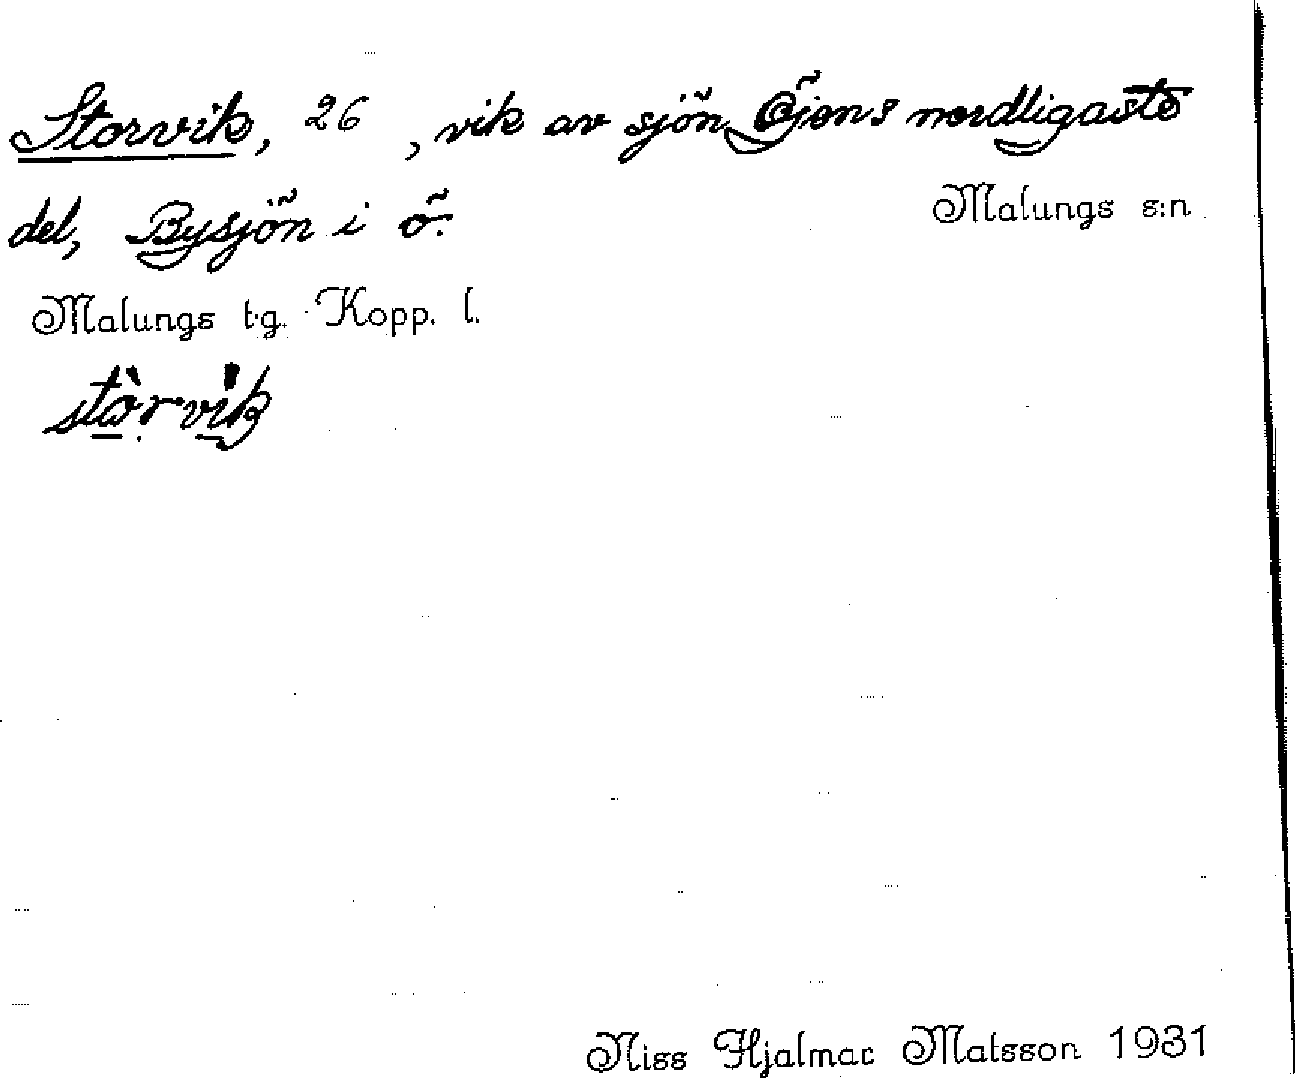 Storvik, 26 , vik av sjön Öjens nordligaste
del, Bysjön i ö.
Malungs s:n
Malungs tg. Kopp. l.
stòrvik
Niss Hjalmar Matsson 1931